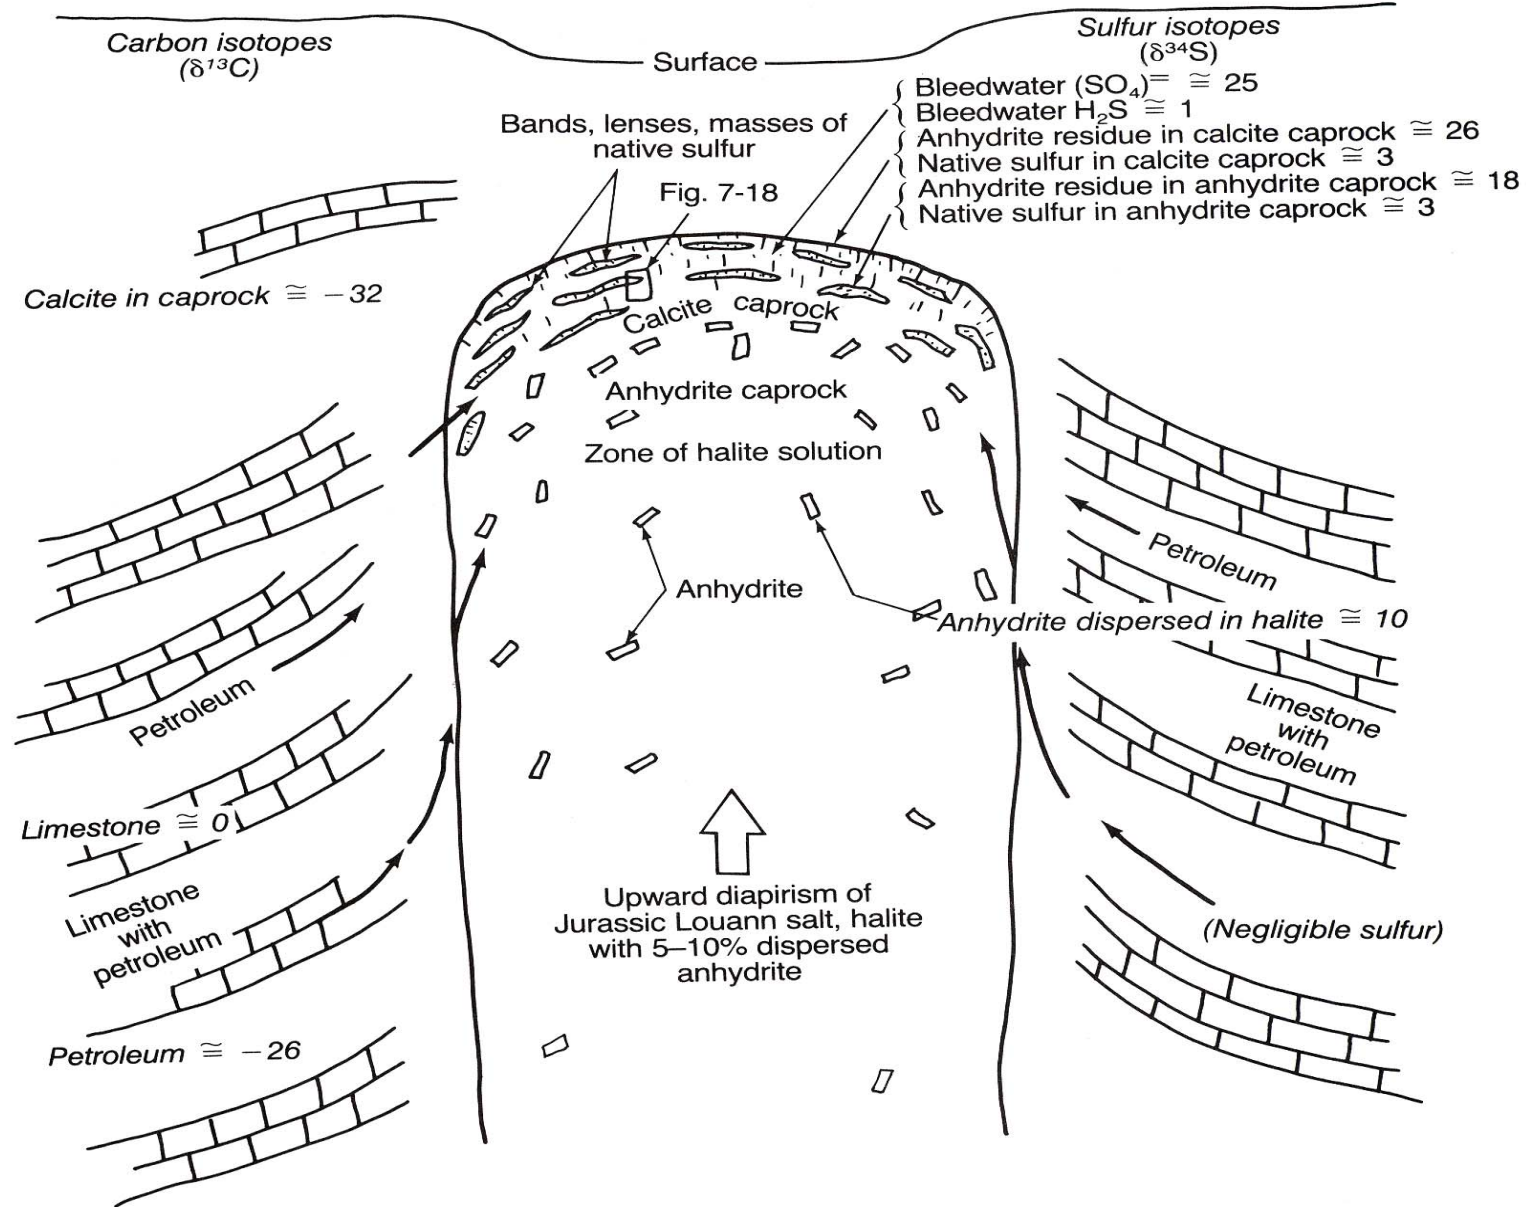 Carbon isotopes
(δ¹³C)
Surface
Sulfur isotopes
(δ³⁴S)
Bleedwater (SO₄)⁼ ≅ 25
Bleedwater H₂S ≅ 1
Anhydrite residue in calcite caprock ≅ 26
Native sulfur in calcite caprock ≅ 3
Anhydrite residue in anhydrite caprock ≅ 18
Native sulfur in anhydrite caprock ≅ 3
Bands, lenses, masses of
native sulfur
Fig. 7-18
Calcite in caprock ≅ −32
Calcite caprock
Anhydrite caprock
Zone of halite solution
Petroleum
Anhydrite
Anhydrite dispersed in halite ≅ 10
Petroleum
Limestone
with
petroleum
Limestone ≅ 0
Limestone
with
petroleum
Upward diapirism of
Jurassic Louann salt, halite
with 5–10% dispersed
anhydrite
(Negligible sulfur)
Petroleum ≅ −26